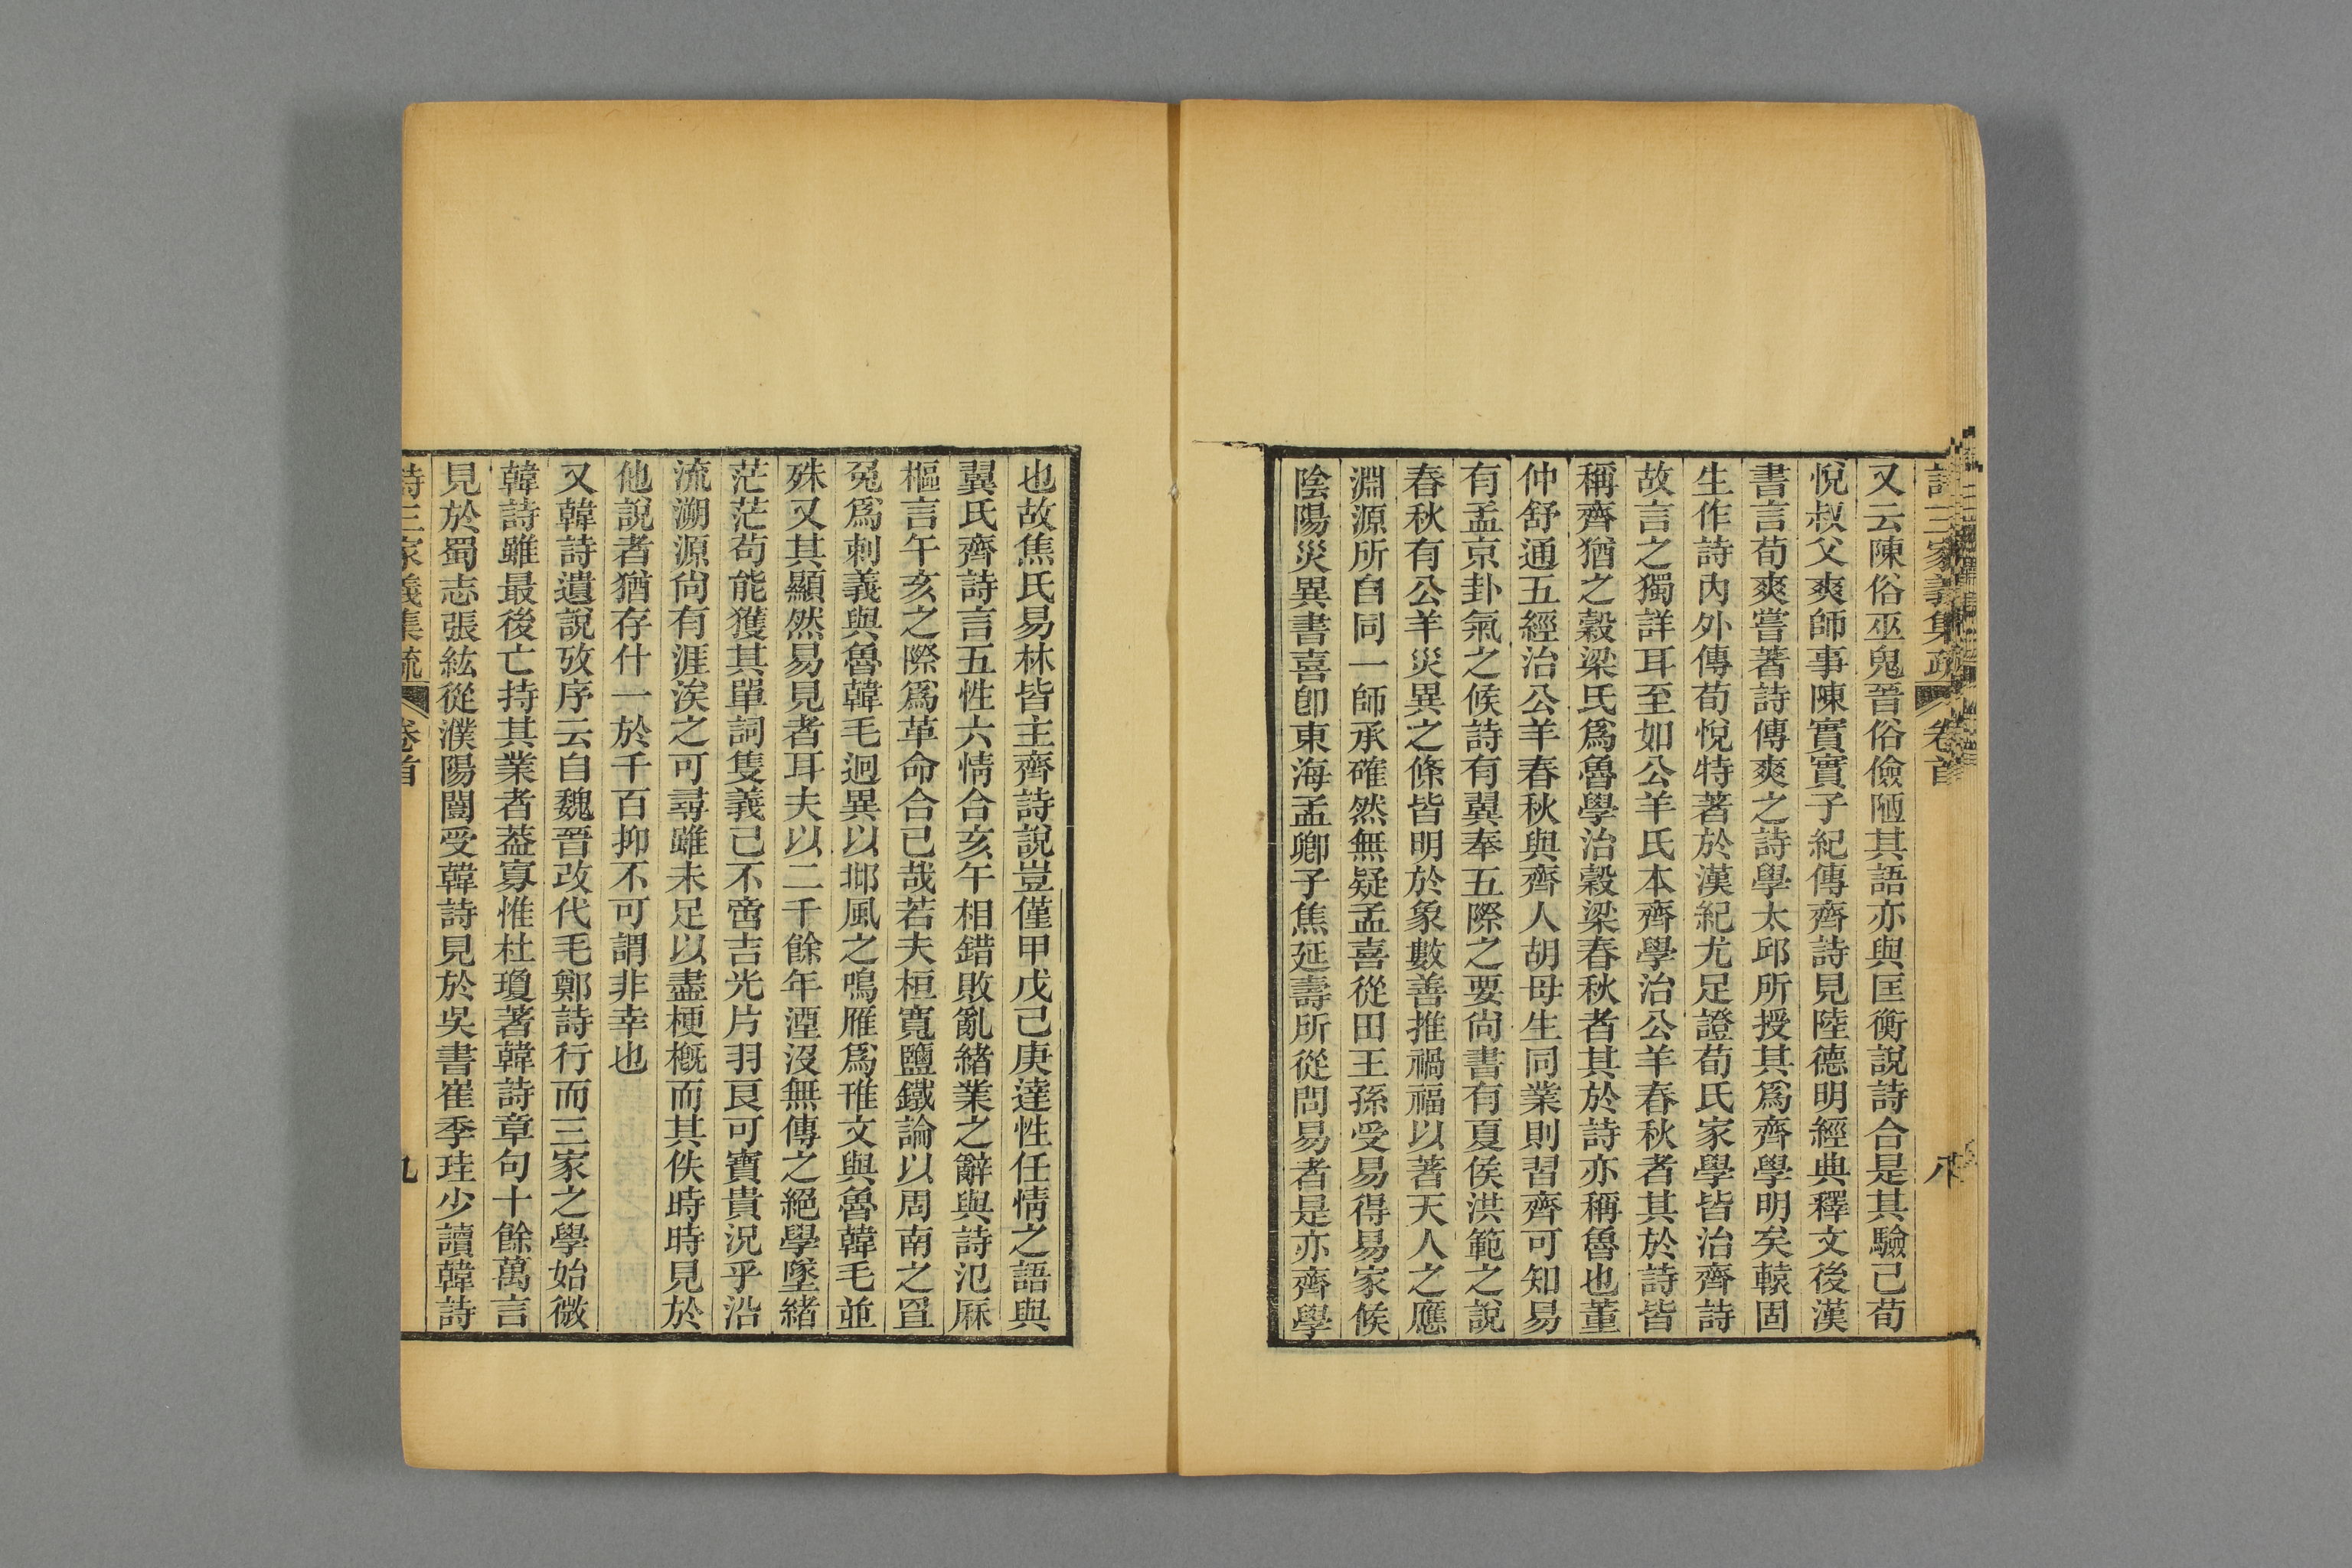 詩三家義集疏 卷首 八
又云陳俗巫鬼晉俗儉陋其語亦與匡衡說詩合是其驗已荀
悅叔父爽師事陳實實子紀傳齊詩見陸德明經典釋文後漢
書言荀爽嘗著詩傳爽之詩學太邱所授其爲齊學明矣轅固
生作詩內外傳荀悅特著於漢紀尤足證荀氏家學皆治齊詩
故言之獨詳耳至如公羊氏本齊學治公羊春秋者其於詩皆
稱齊猶之穀梁氏爲魯學治穀梁春秋者其於詩亦稱魯也董
仲舒通五經治公羊春秋與齊人胡母生同業則習齊可知易
有孟京卦氣之候詩有翼奉五際之要尙書有夏侯洪範之說
春秋有公羊災異之條皆明於象數善推禍福以著天人之應
淵源所自同一師承確然無疑孟喜從田王孫受易得易家候
陰陽災異書喜卽東海孟卿子焦延壽所從問易者是亦齊學
也故焦氏易林皆主齊詩說豈僅甲戊己庚達性任情之語與
翼氏齊詩言五性六情合亥午相錯敗亂緒業之辭與詩氾厤
樞言午亥之際爲革命合已哉若夫桓寬鹽鐵論以周南之罝
兔爲刺義與魯韓毛迥異以邶風之鳴雁爲鳱文與魯韓毛並
殊又其顯然易見者耳夫以二千餘年湮沒無傳之絕學墜緒
茫茫苟能獲其單詞隻義已不啻吉光片羽良可寶貴況乎沿
流溯源尙有涯涘之可尋雖未足以盡梗槪而其佚時時見於
他說者猶存什一於千百抑不可謂非幸也
又韓詩遺說攷序云自魏晉改代毛鄭詩行而三家之學始微
韓詩雖最後亡持其業者葢寡惟杜瓊著韓詩章句十餘萬言
見於蜀志張紘從濮陽闓受韓詩見於吳書崔季珪少讀韓詩
詩三家義集疏 卷首 九